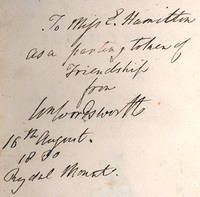 To Miss E. Hamilton
as a parting token of
Friendship
from
Wm Wordsworth
16th August.
1830
Rydal Mount.